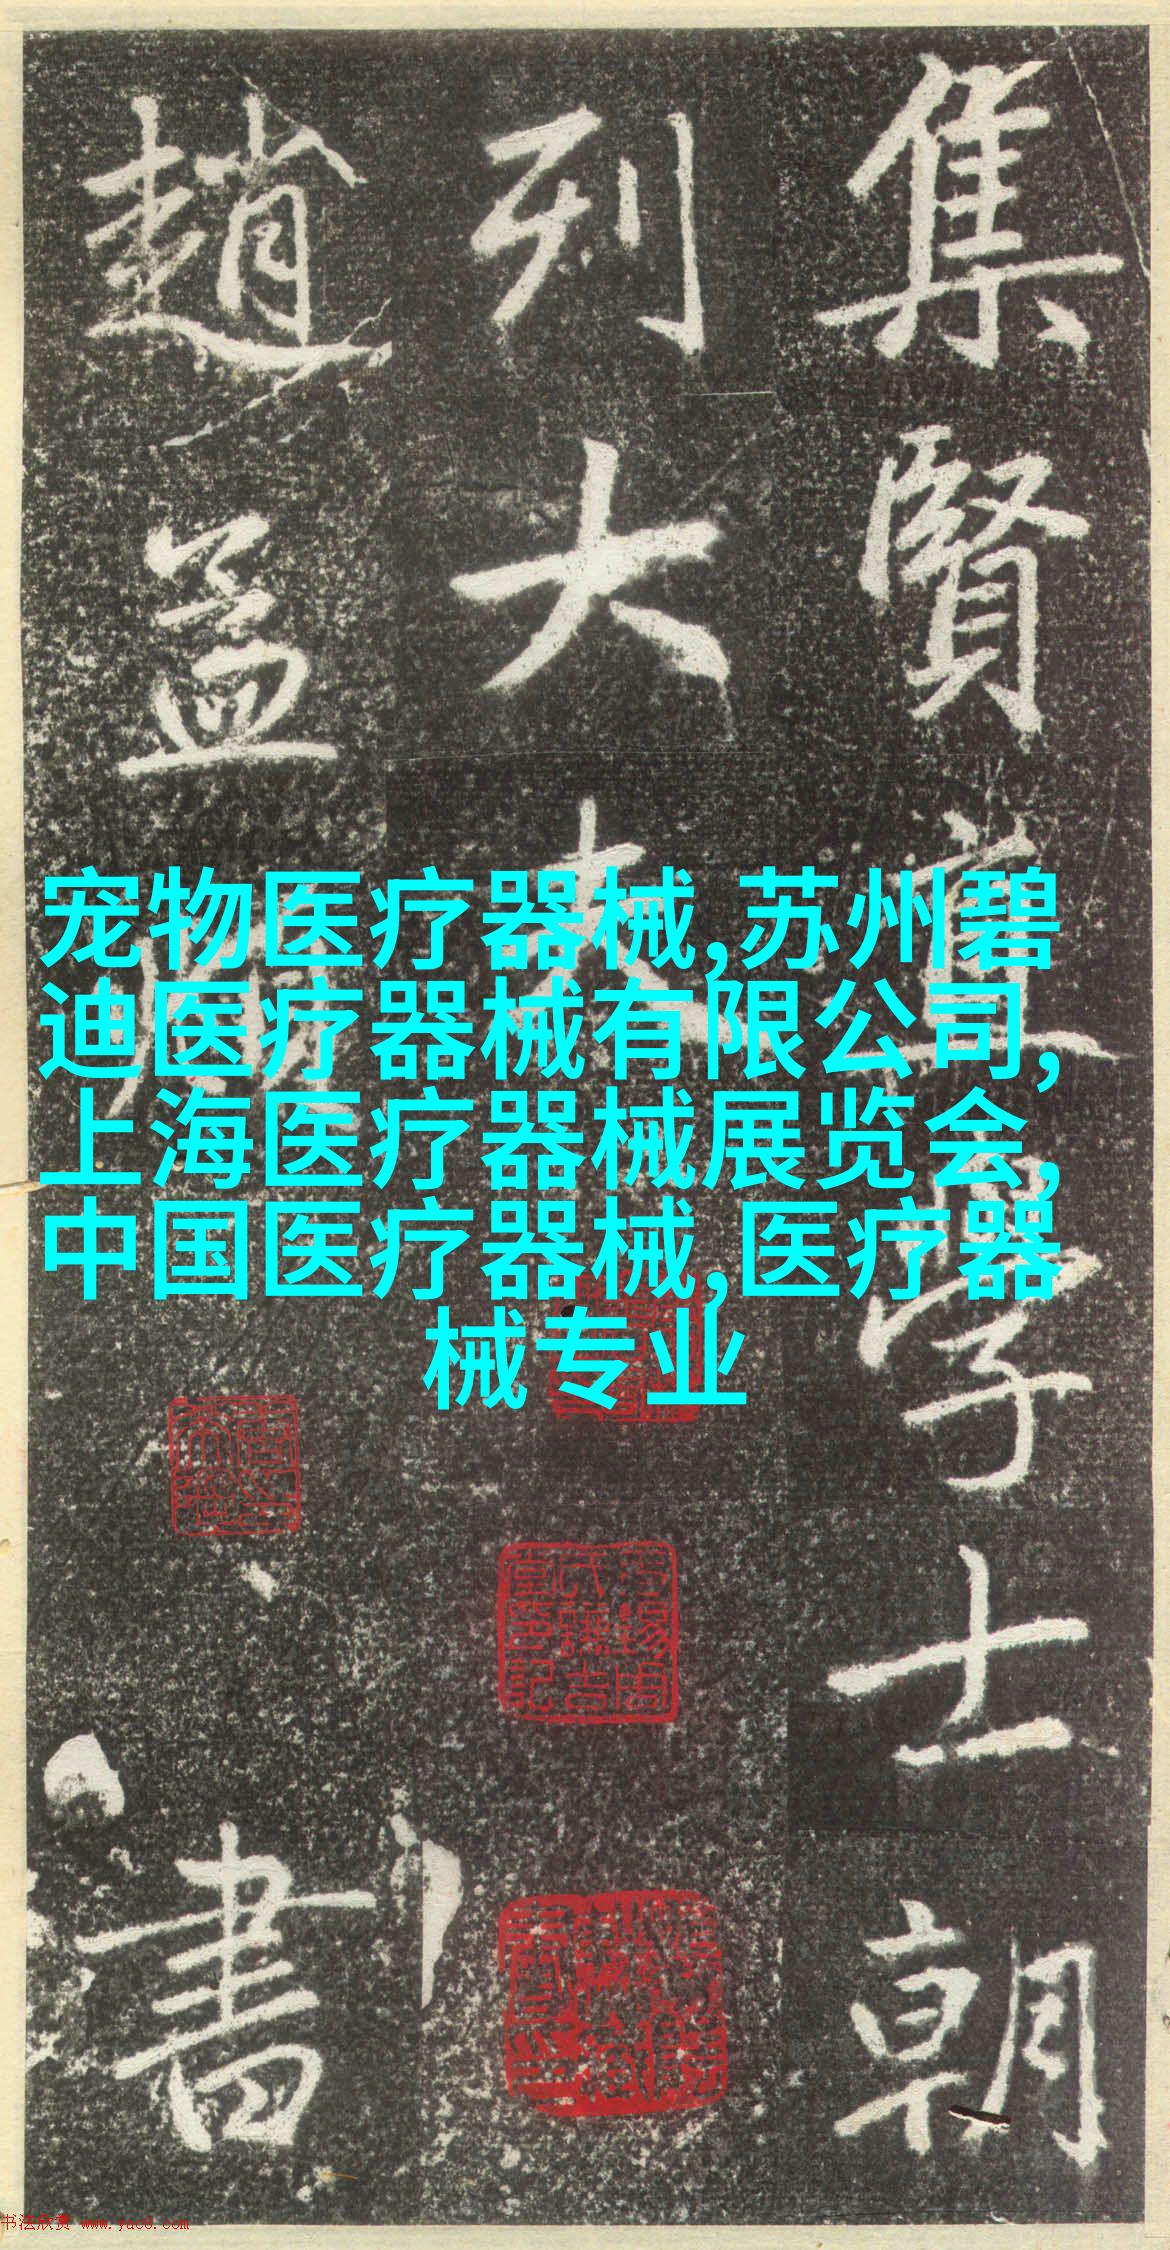 集賢直學士朝
列大夫
趙孟頫書
宠物医疗器械,苏州碧
迪医疗器械有限公司,
上海医疗器械展览会,
中国医疗器械,医疗器
械专业
书法欣赏 www.yac8.com